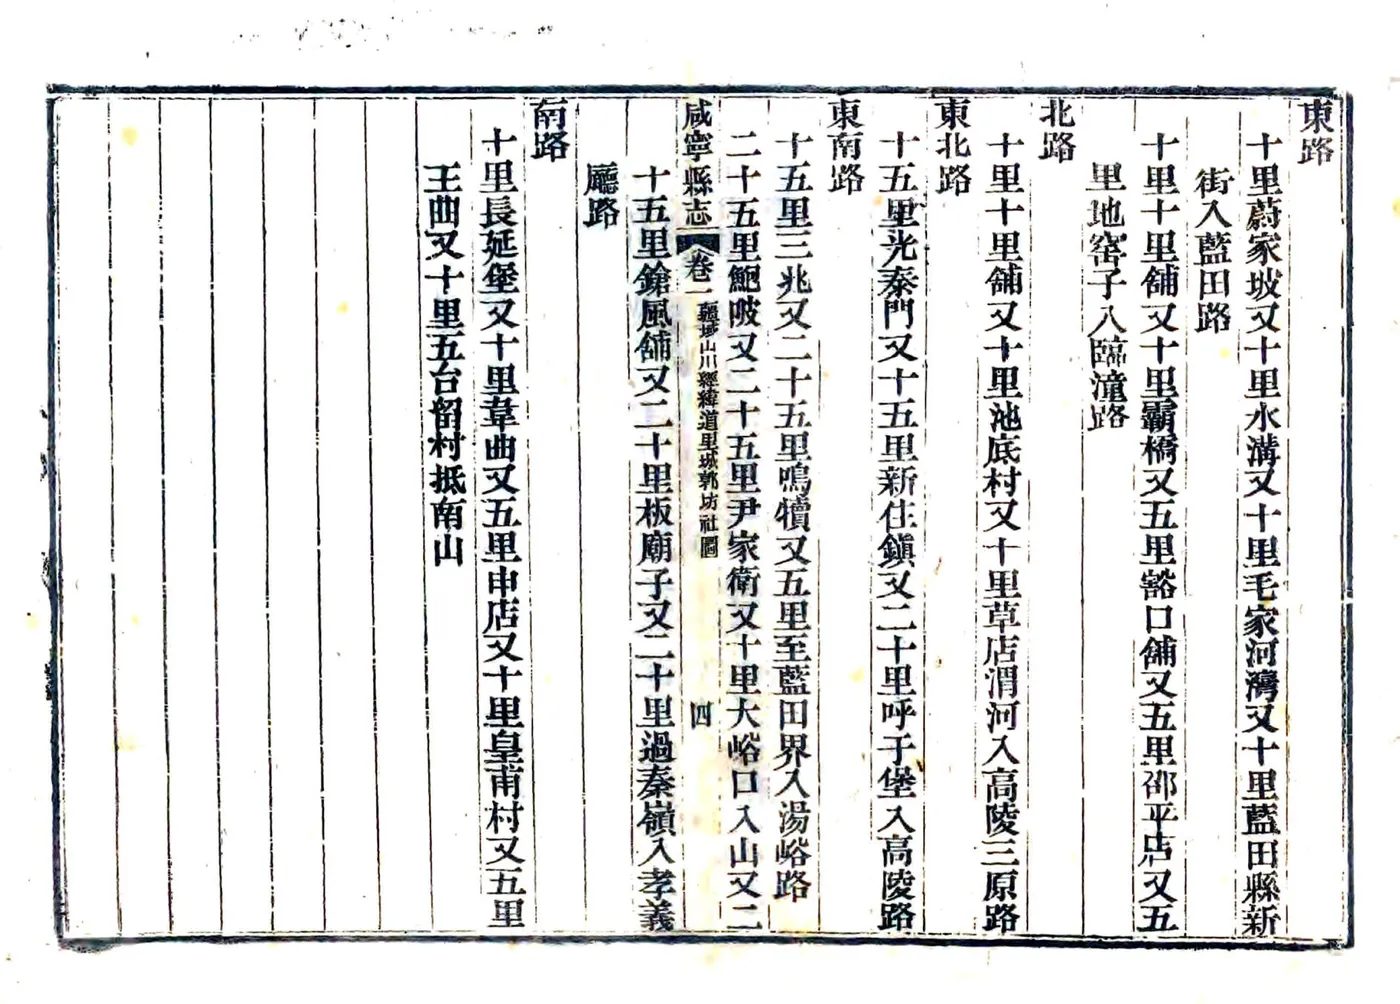 東路
十里蔚家坡又十里水溝又十里毛家河灣又十里藍田縣新
街入藍田路
十里十里舖又十里霸橋又五里豁口舖又五里邵平店又五
里地窑子入臨潼路
北路
十里十里舖又十里池底村又十里草店渭河入高陵三原路
東北路
十五里光泰門又十五里新住鎭又二十里呼子堡入高陵路
東南路
十五里三兆又二十五里鳴犢又五里至藍田界入湯峪路
二十五里鮑陂又二十五里尹家衛又十里大峪口入山又二
咸寧縣志 卷一 疆域山川經緯道里城郭坊社圖 四
十五里鎗風舖又二十里板廟子又二十里過秦嶺入孝義
廳路
南路
十里長延堡又十里韋曲又五里申店又十里皇甫村又五里
王曲又十里五台留村抵南山